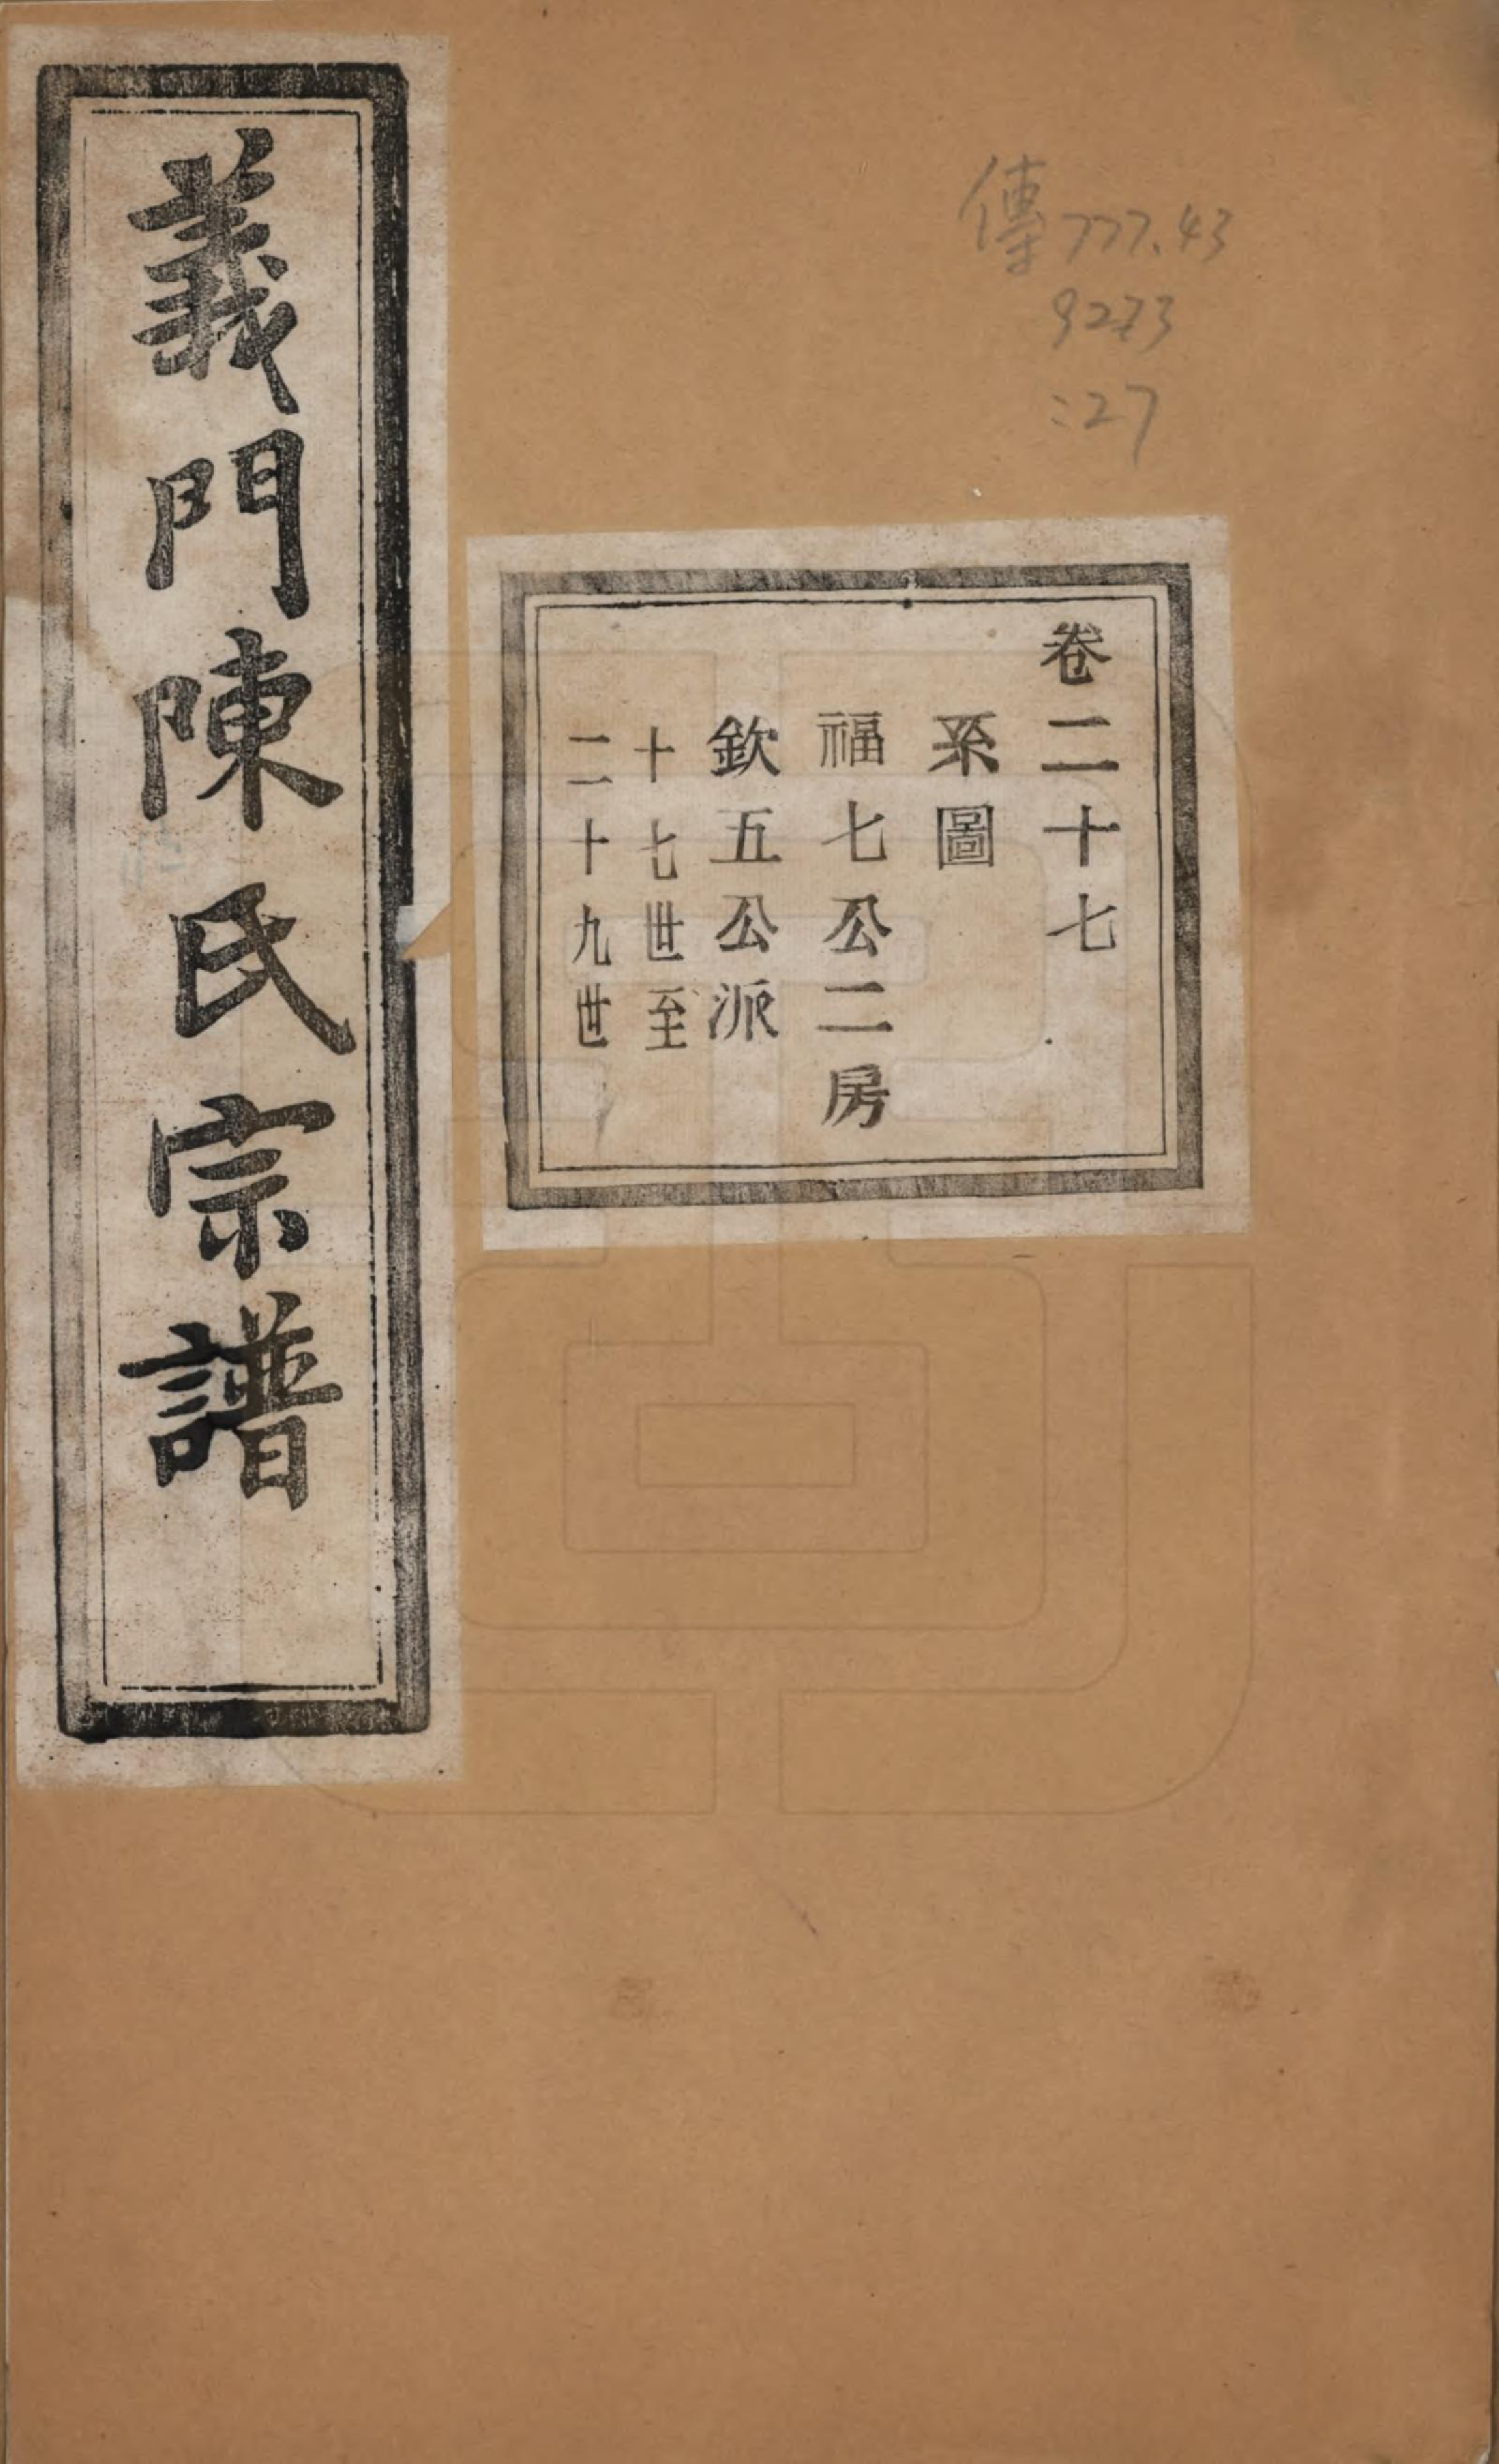 義門陳氏宗譜
傳777.43
9273
:27
卷二十七
系圖
福七公二房
欽五公派
十七世至
二十九世